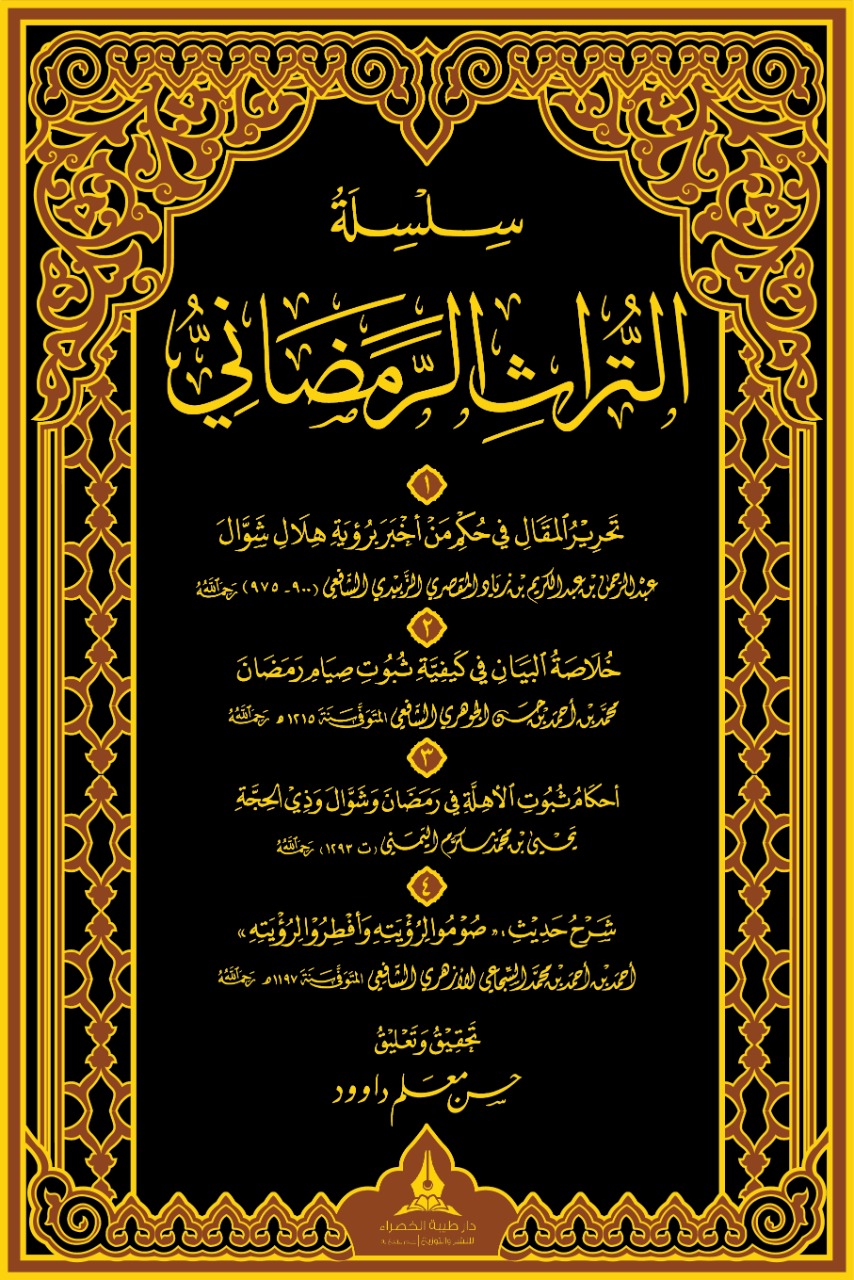 سِلْسِلَةُ
التُّرَاثِ الرَّمَضَانِيِّ
١
تَحْرِيْرُ المَقَالِ فِي حُكْمِ مَنْ أَخْبَرَ بِرُؤيَةِ هِلَالِ شَوَّالَ
عبد الرحمن بن عبد الكريم بن زياد المقصري الزَّبيدي الشافعي (٩٠٠ - ٩٧٥) رَحِمَهُ اللَّهُ
٢
خُلَاصَةُ البَيَانِ فِي كَيفِيَّةِ ثُبُوتِ صِيَامِ رَمَضَانَ
محمَّد بن أحمد بن حسن الجوهري الشافعي المتوفَّى سَنَة ١٢١٥ هـ رَحِمَهُ اللَّهُ
٣
أحكَامُ ثُبُوتِ الأهِلَّةِ فِي رَمَضَانَ وَشَوَّالَ وَذِيْ الحِجَّةِ
يحيى بن محمَّد شكروم اليمَني (ت ١٢٩٣) رَحِمَهُ اللَّهُ
٤
شَرْحُ حَدِيْثِ: «صُوْمُوا لِرُؤْيَتِهِ وَأَفْطِرُوا لِرُؤْيَتِهِ»
أحمد بن أحمد بن محمَّد السِّجاعي الأزهري الشَّافِعِي المتَوَفَّى سَنَة ١١٩٧ هـ رَحِمَهُ اللَّهُ
تَحْقِيْقُ وَتَعْلِيْقُ
حسن معلم داوود
دار طيبة الخضراء
للنشر والتوزيع